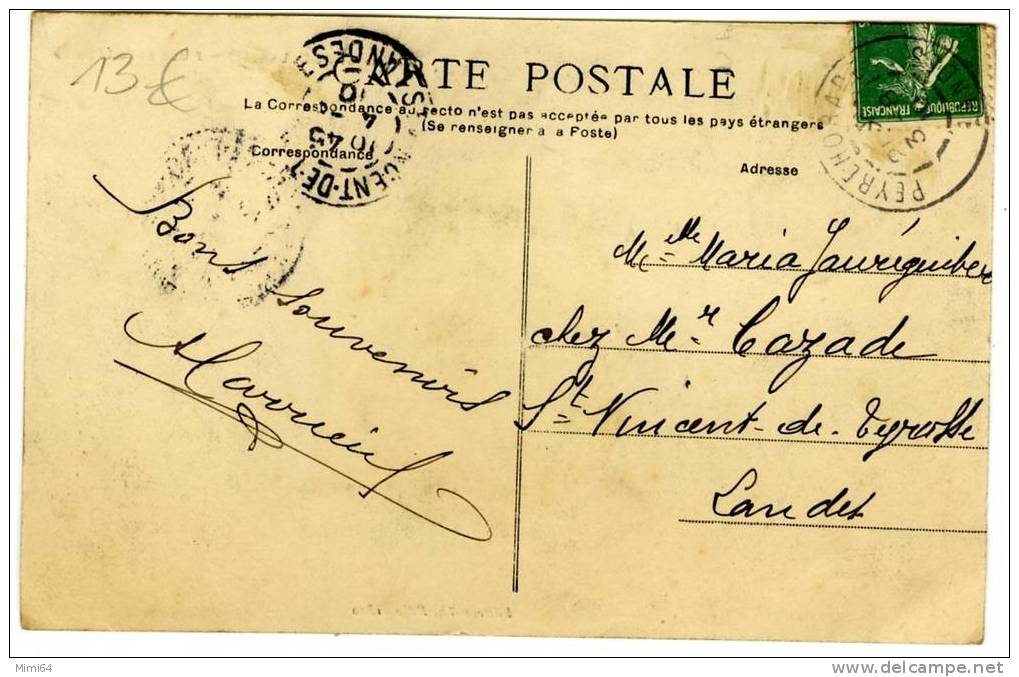 13 €
CARTE POSTALE
La Correspondance au recto n'est pas acceptée par tous les pays étrangers
(Se renseigner à la Poste)
Correspondance
Adresse
RÉPUBLIQUE FRANÇAISE
PEYREHORADE
LANDES
10 45
Bons
souvenirs
Mlle Maria Jauréguiber
chez Mr Cazade
St Vincent-de-Tyrosse
Landes
Mimi64
www.delcampe.net